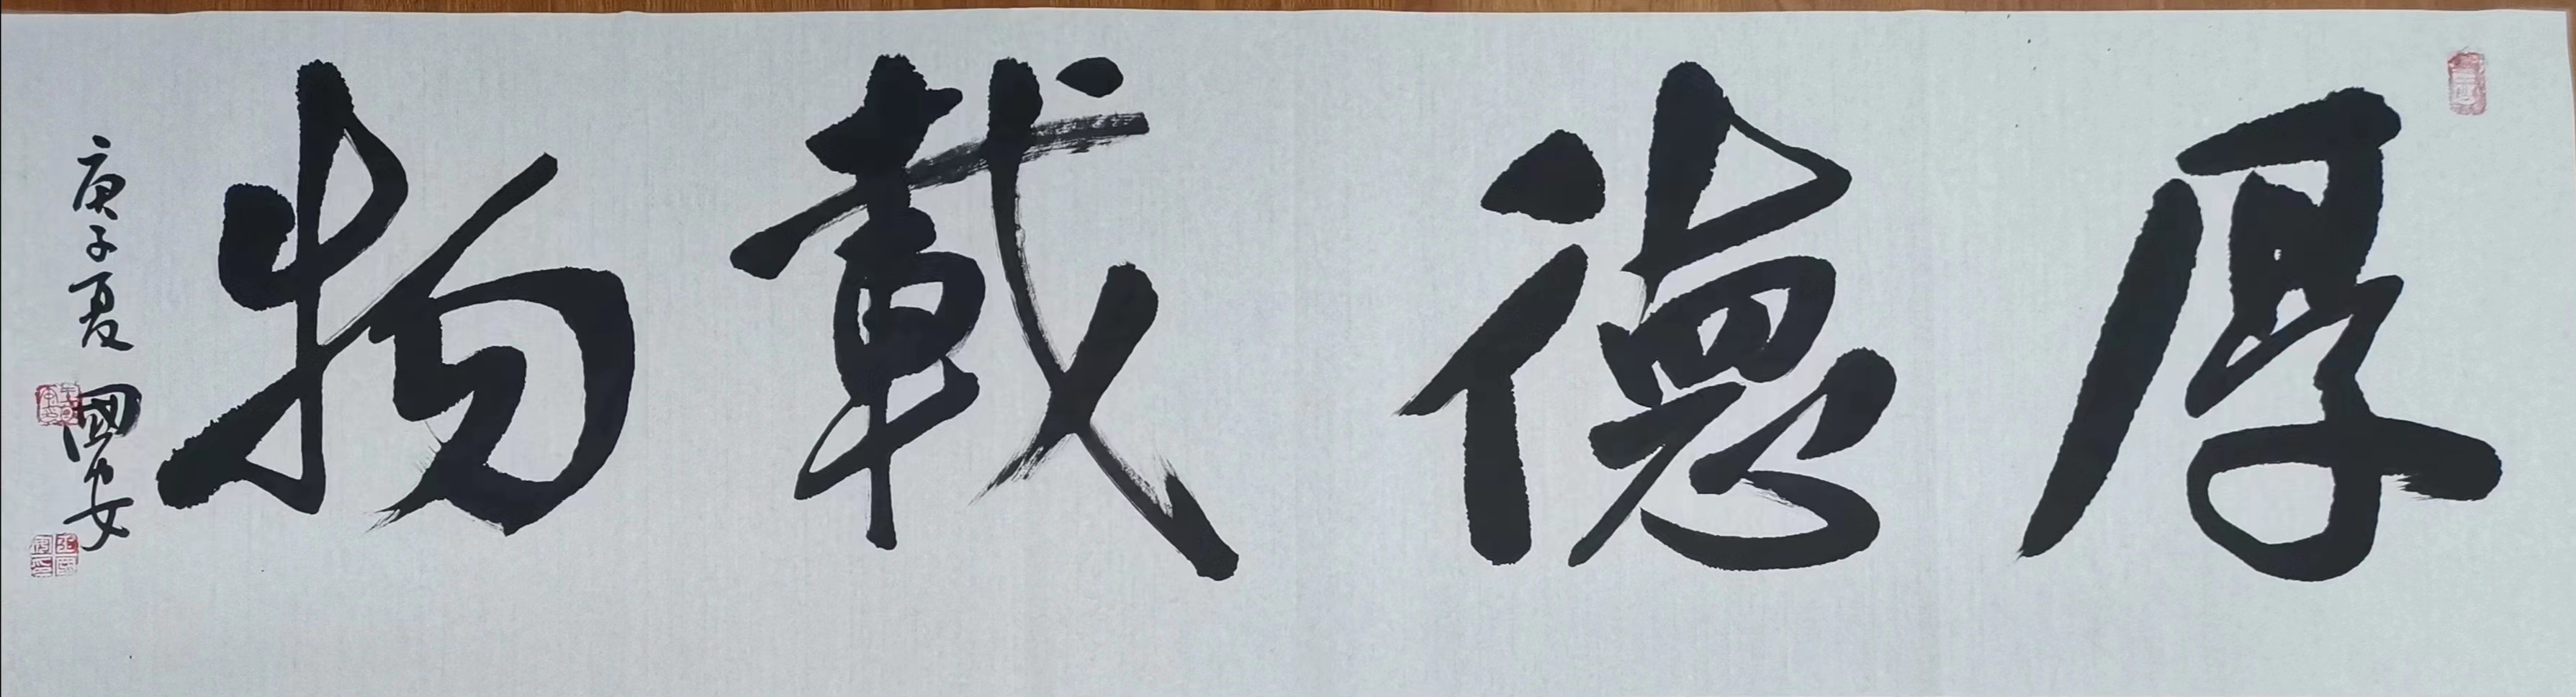 厚德載物
庚子夏 國安